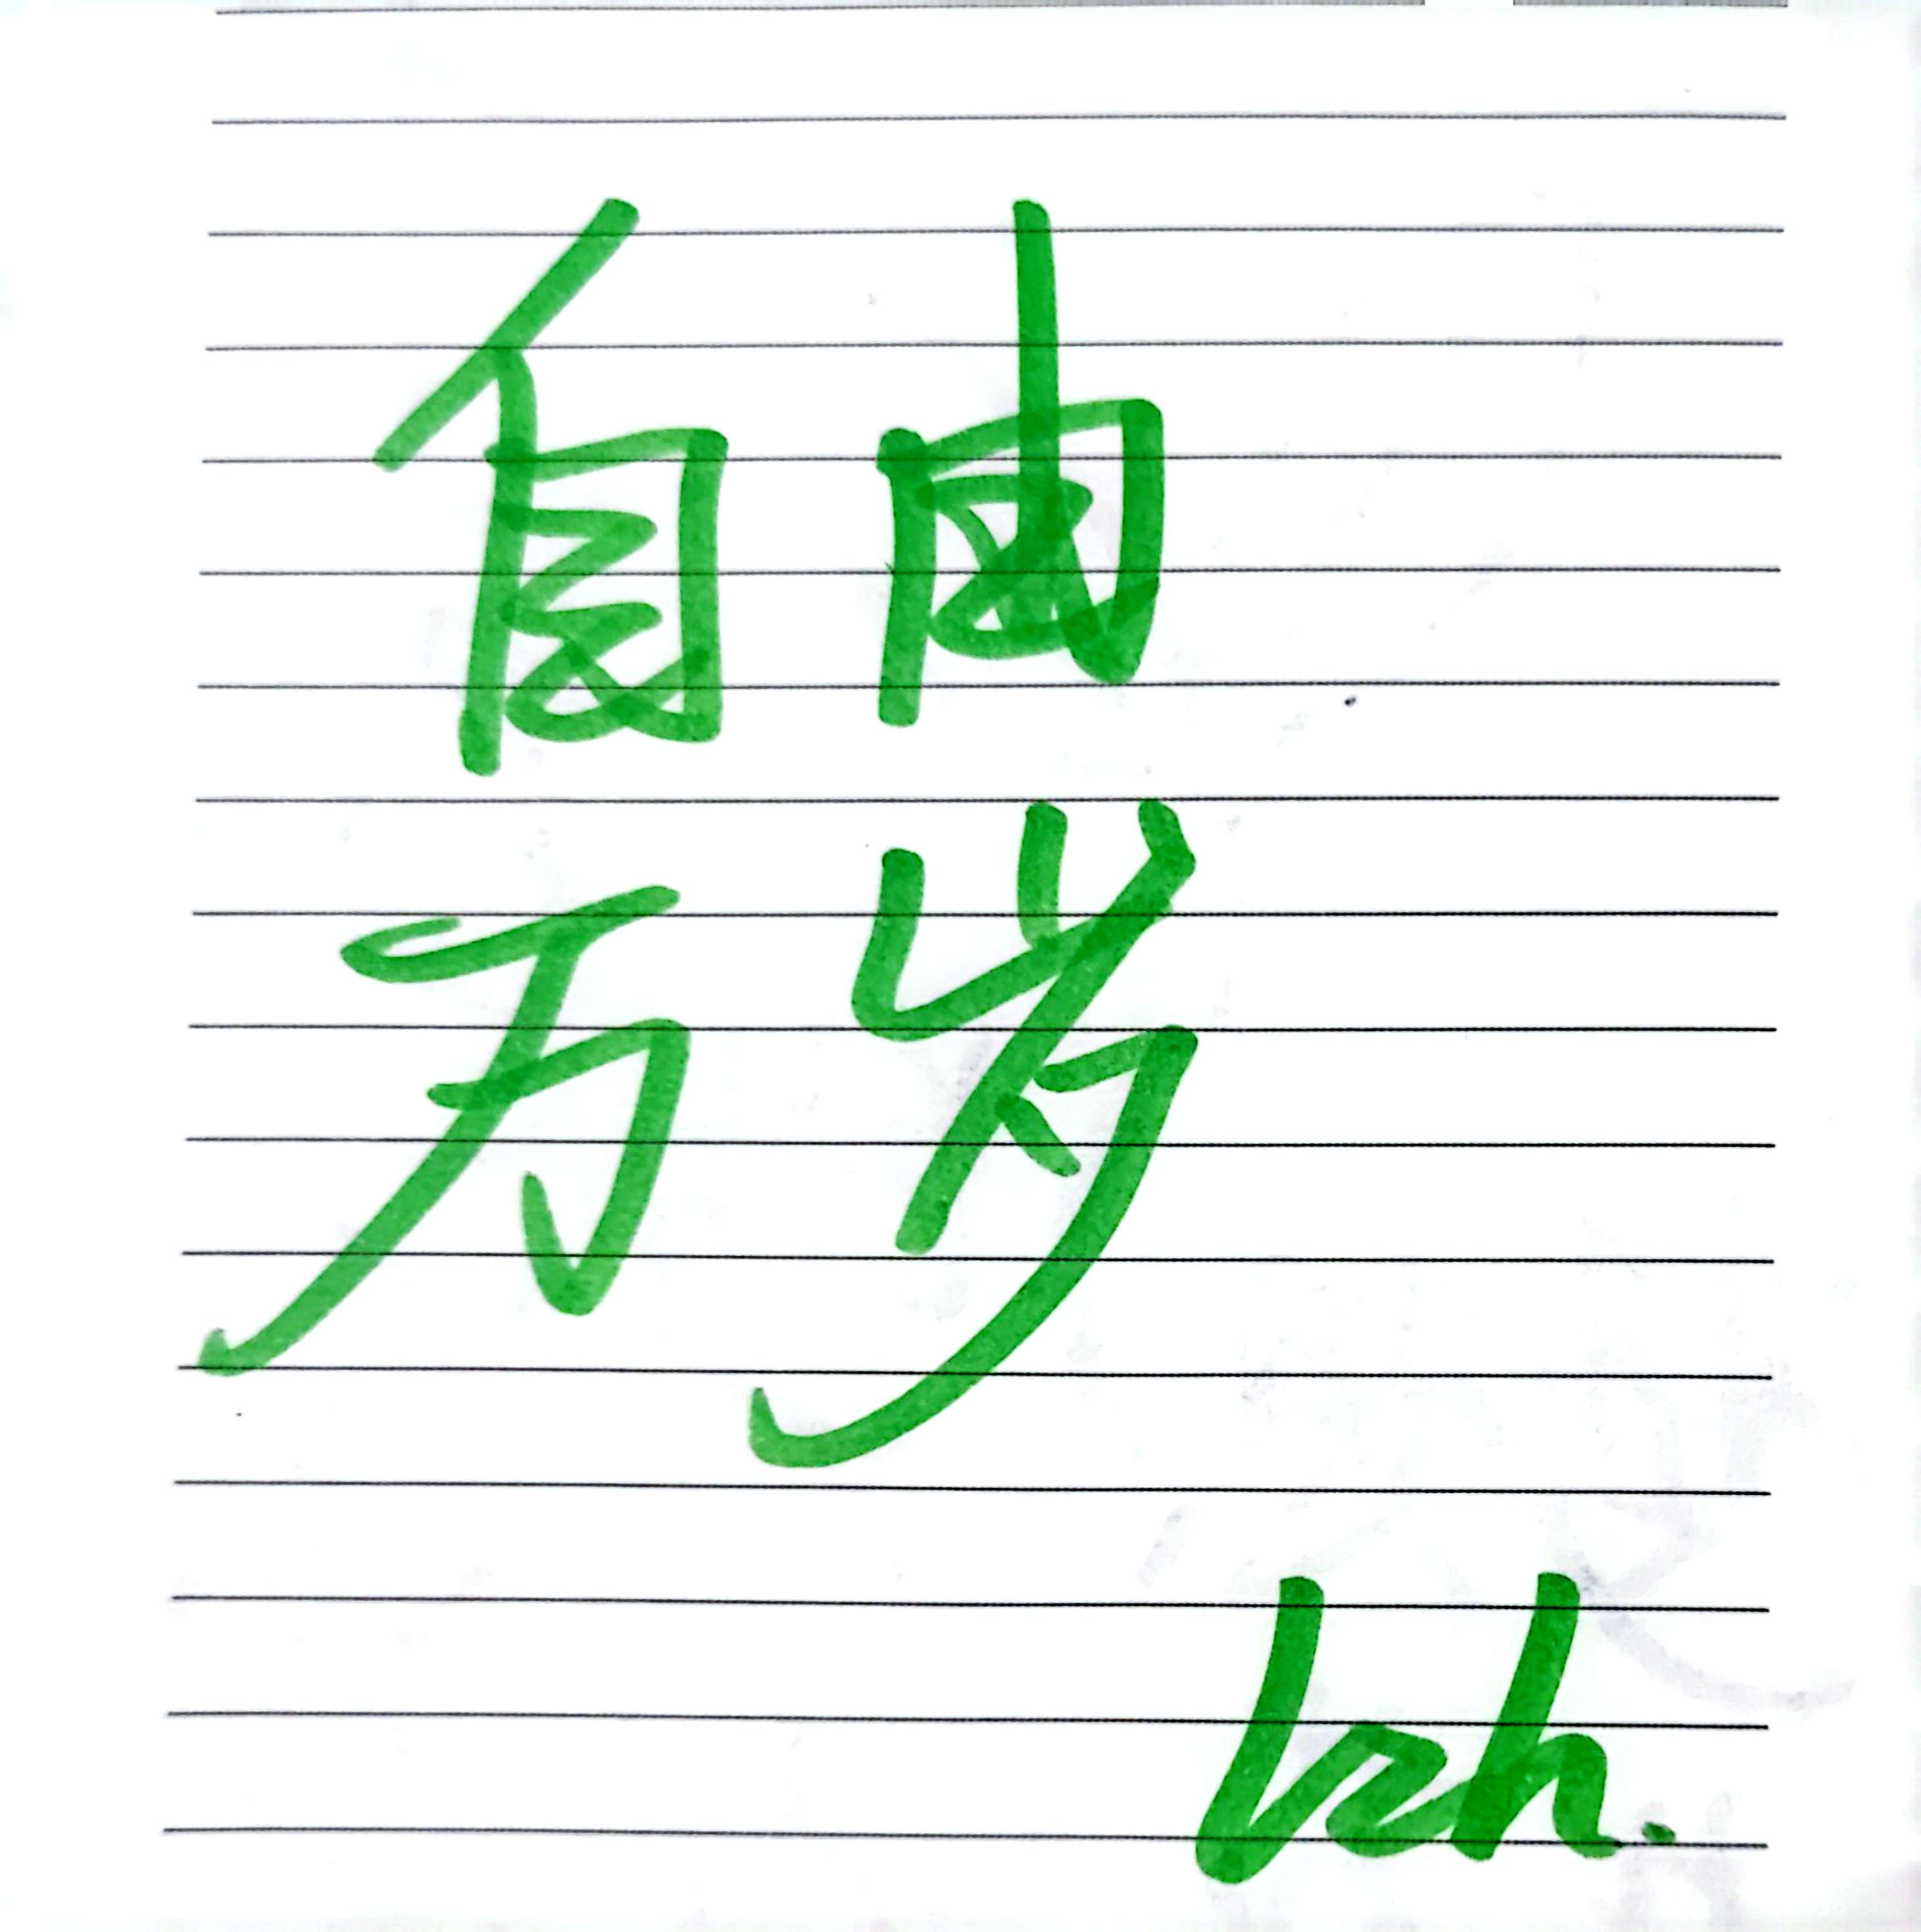 自由
万岁
lzh.